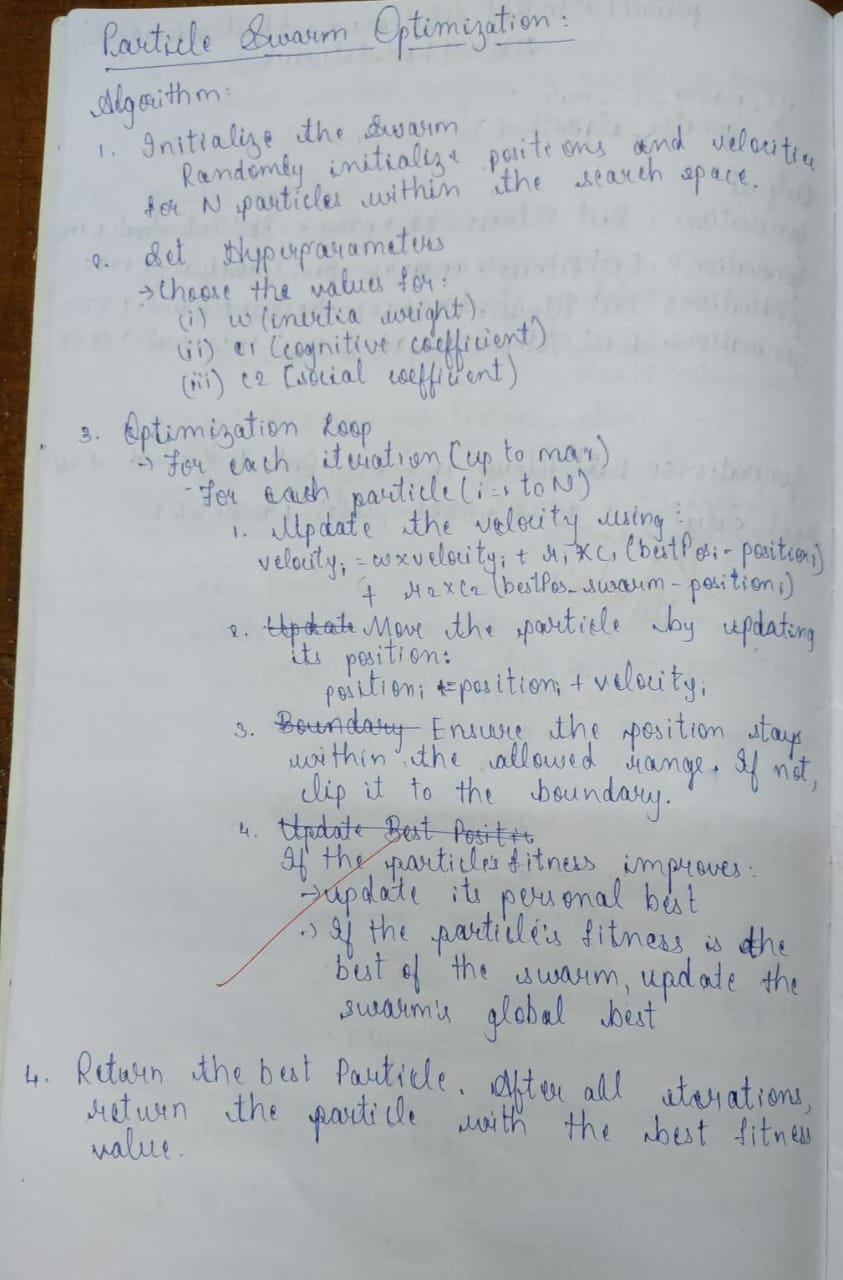 Particle Swarm Optimization:
Algorithm:
1. Initialize the Swarm
Randomly initialize positions and velocities
for N particles within the search space.
2. Set Hyperparameters
→ Choose the values for:
(i) w (inertia weight)
(ii) c1 (cognitive coefficient)
(iii) c2 (social coefficient)
3. Optimization Loop
→ For each iteration (up to max)
- For each particle (i=1 to N)
1. Update the velocity using:
velocityᵢ = w x velocityᵢ + r₁ x c₁ (bestPosᵢ - positionᵢ)
+ r₂ x c₂ (bestPos_swarm - positionᵢ)
2. Update Move the particle by updating
its position:
positionᵢ = positionᵢ + velocityᵢ
3. Boundary Ensure the position stays
within the allowed range. If not,
clip it to the boundary.
4. Update Best Posit
If the particle's fitness improves:
→ update its personal best
→ If the particle's fitness is the
best of the swarm, update the
swarm's global best
4. Return the best Particle. After all iterations,
return the particle with the best fitness
value.